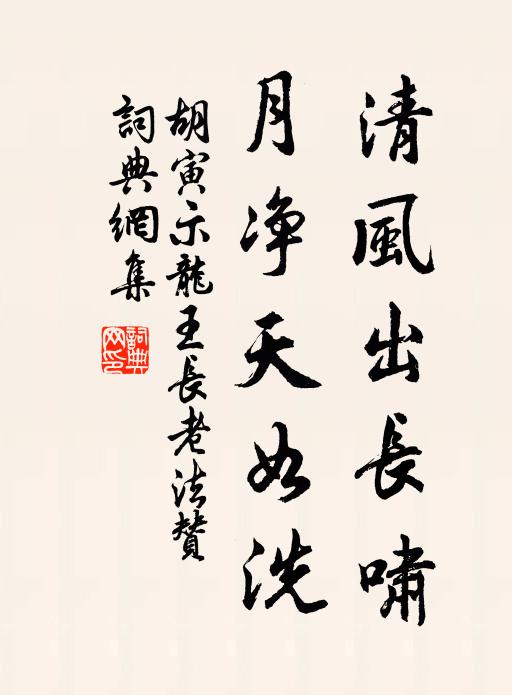 清風出長嘯
月净天如洗
胡寅示龍王長老法贊
詞典網集
詞典網印